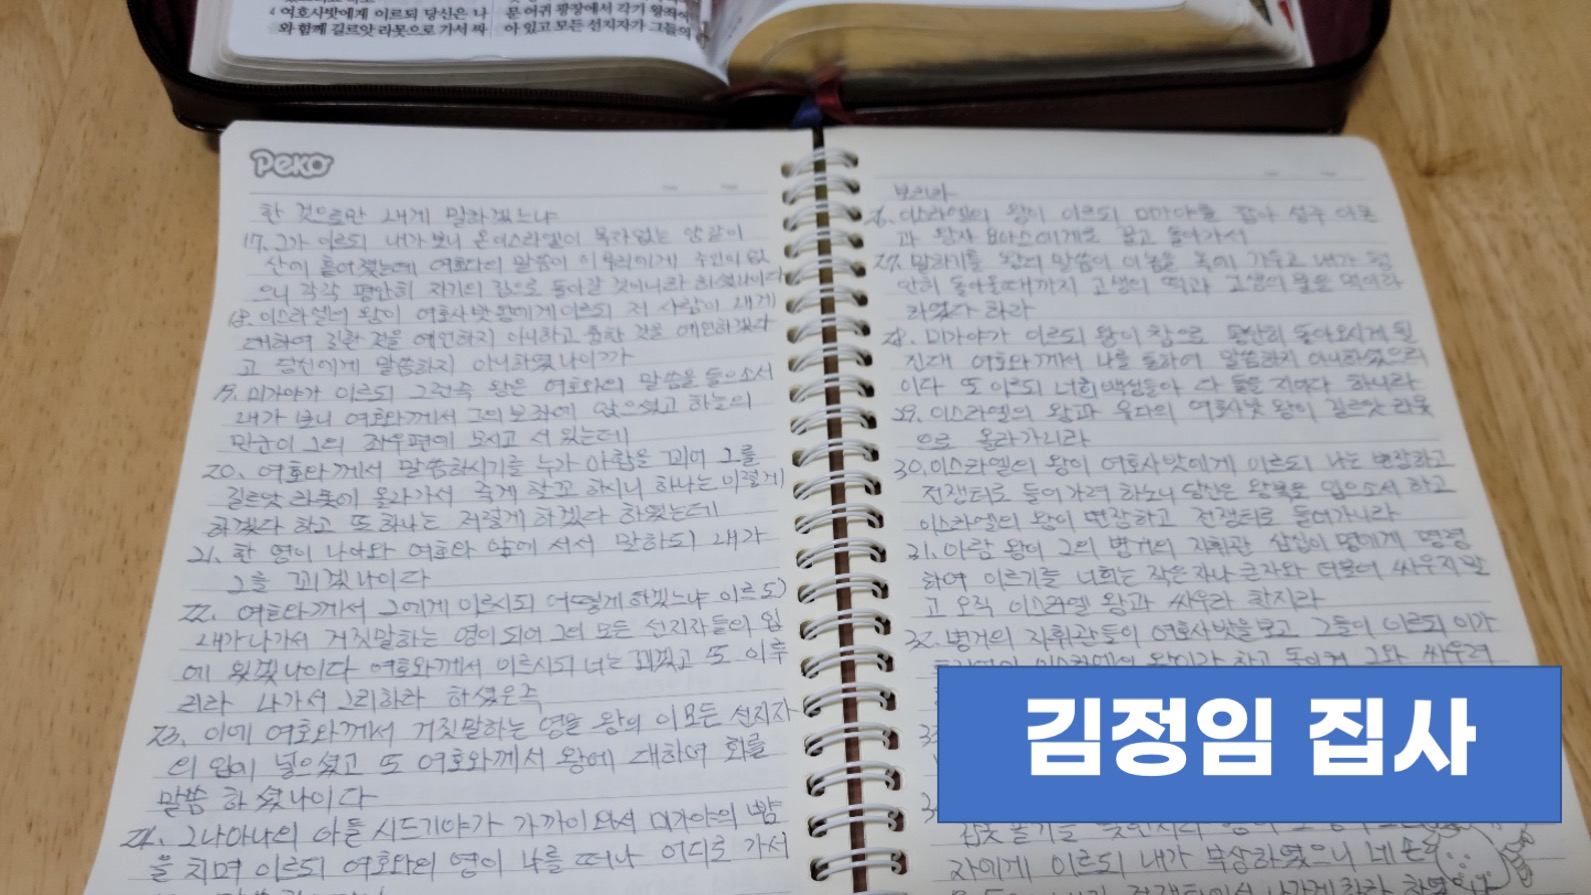 4 여호사밧에게 이르되 당신은 나
와 함께 길르앗 라못으로 가서 싸
문 어귀 광장에서 각기 왕좌에
아 있고 모든 선지자가 그들의
Peko
한 것으로만 내게 말하겠느냐
17. 그가 이르되 내가 보니 온 이스라엘이 목자 없는 양 같이
산에 흩어졌는데 여호와의 말씀이 이 무리에게 주인이 없
으니 각각 평안히 자기의 집으로 돌아갈 것이니라 하셨나이다
18. 이스라엘의 왕이 여호사밧 왕에게 이르되 저 사람이 내게
대하여 길한 것을 예언하지 아니하고 흉한 것을 예언하겠다
고 당신에게 말씀하지 아니하였나이까
19. 미가야가 이르되 그런즉 왕은 여호와의 말씀을 들으소서
내가 보니 여호와께서 그의 보좌에 앉으셨고 하늘의
만군이 그의 좌우편에 모시고 서 있는데
20. 여호와께서 말씀하시기를 누가 아합을 꾀어 그를
길르앗 라못에 올라가서 죽게 할꼬 하시니 하나는 이렇게
하겠다 하고 또 하나는 저렇게 하겠다 하였는데
21. 한 영이 나아와 여호와 앞에 서서 말하되 내가
그를 꾀겠나이다
22. 여호와께서 그에게 이르시되 어떻게 하겠느냐 이르되
내가 나가서 거짓말하는 영이 되어 그의 모든 선지자들의 입
에 있겠나이다 여호와께서 이르시되 너는 꾀겠고 또 이루
리라 나가서 그리하라 하셨은즉
23. 이에 여호와께서 거짓말하는 영을 왕의 이 모든 선지자
의 입에 넣으셨고 또 여호와께서 왕에 대하여 화를
말씀 하셨나이다
24. 그나아나의 아들 시드기야가 가까이 와서 미가야의 뺨
을 치며 이르되 여호와의 영이 나를 떠나 어디로 가서
보리라
26. 이스라엘의 왕이 이르되 미가야를 잡아 성주 아몬
과 왕자 요아스에게로 끌고 돌아가서
27. 말하기를 왕의 말씀이 이놈을 옥에 가두고 내가 평
안히 돌아올때까지 고생의 떡과 고생의 물을 먹이라
하였다 하라
28. 미가야가 이르되 왕이 참으로 평안히 돌아오시게 될
진대 여호와께서 나를 통하여 말씀하지 아니하셨으리
이다 또 이르되 너희 백성들아 다 들을지어다 하니라
29. 이스라엘의 왕과 유다의 여호사밧 왕이 길르앗 라못
으로 올라가니라
30. 이스라엘의 왕이 여호사밧에게 이르되 나는 변장하고
전쟁터로 들어가려 하노니 당신은 왕복을 입으소서 하고
이스라엘의 왕이 변장하고 전쟁터로 들어가니라
31. 아람 왕이 그의 병거의 지휘관 삼십이 명에게 명령
하여 이르기를 너희는 작은 자나 큰 자와 더불어 싸우지 말
고 오직 이스라엘 왕과 싸우라 한지라
32. 병거의 지휘관들이 여호사밧을 보고 그들이 이르되 이가
김정임 집사
자에게 이르되 내가 부상하였으니 네 손